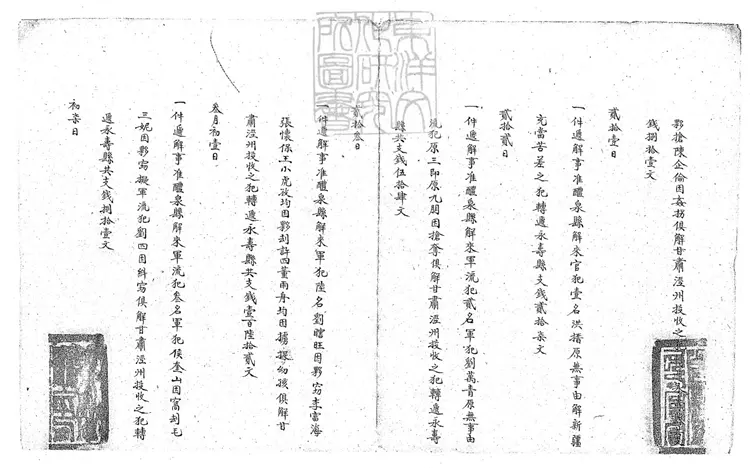 夥搶陳企倫因姦拐俱解甘肅涇州投收之
錢捌拾壹文
貳拾壹日
一件遞解事准醴泉縣解來官犯壹名洪搢原無事由解新疆
充當苦差之犯轉遞永壽縣支錢貳拾柒文
貳拾貳日
一件遞解事准醴泉縣解來軍流犯貳名軍犯劉萬青原無事由
流犯原三即原九朋因搶奪俱解甘肅涇州投收之犯轉遞永壽
縣共支錢伍拾肆文
貳拾叁日
一件遞解事准醴泉縣解來軍犯陸名劉瞎旺因夥竊李雷海
張懷保王小虎孜均因夥刮許四董雨舟均因擄捉幼孩俱解甘
肅涇州投收之犯轉遞永壽縣共支錢壹百陸拾貳文
叁月初壹日
一件遞解事准醴泉縣解來軍流犯叁名軍犯侯奎山因窩刮毛
三妮因夥竊擬軍流犯劉四因糾竊俱解甘肅涇州投收之犯轉
遞永壽縣共支錢捌拾壹文
初柒日
東洋文化研究所圖書